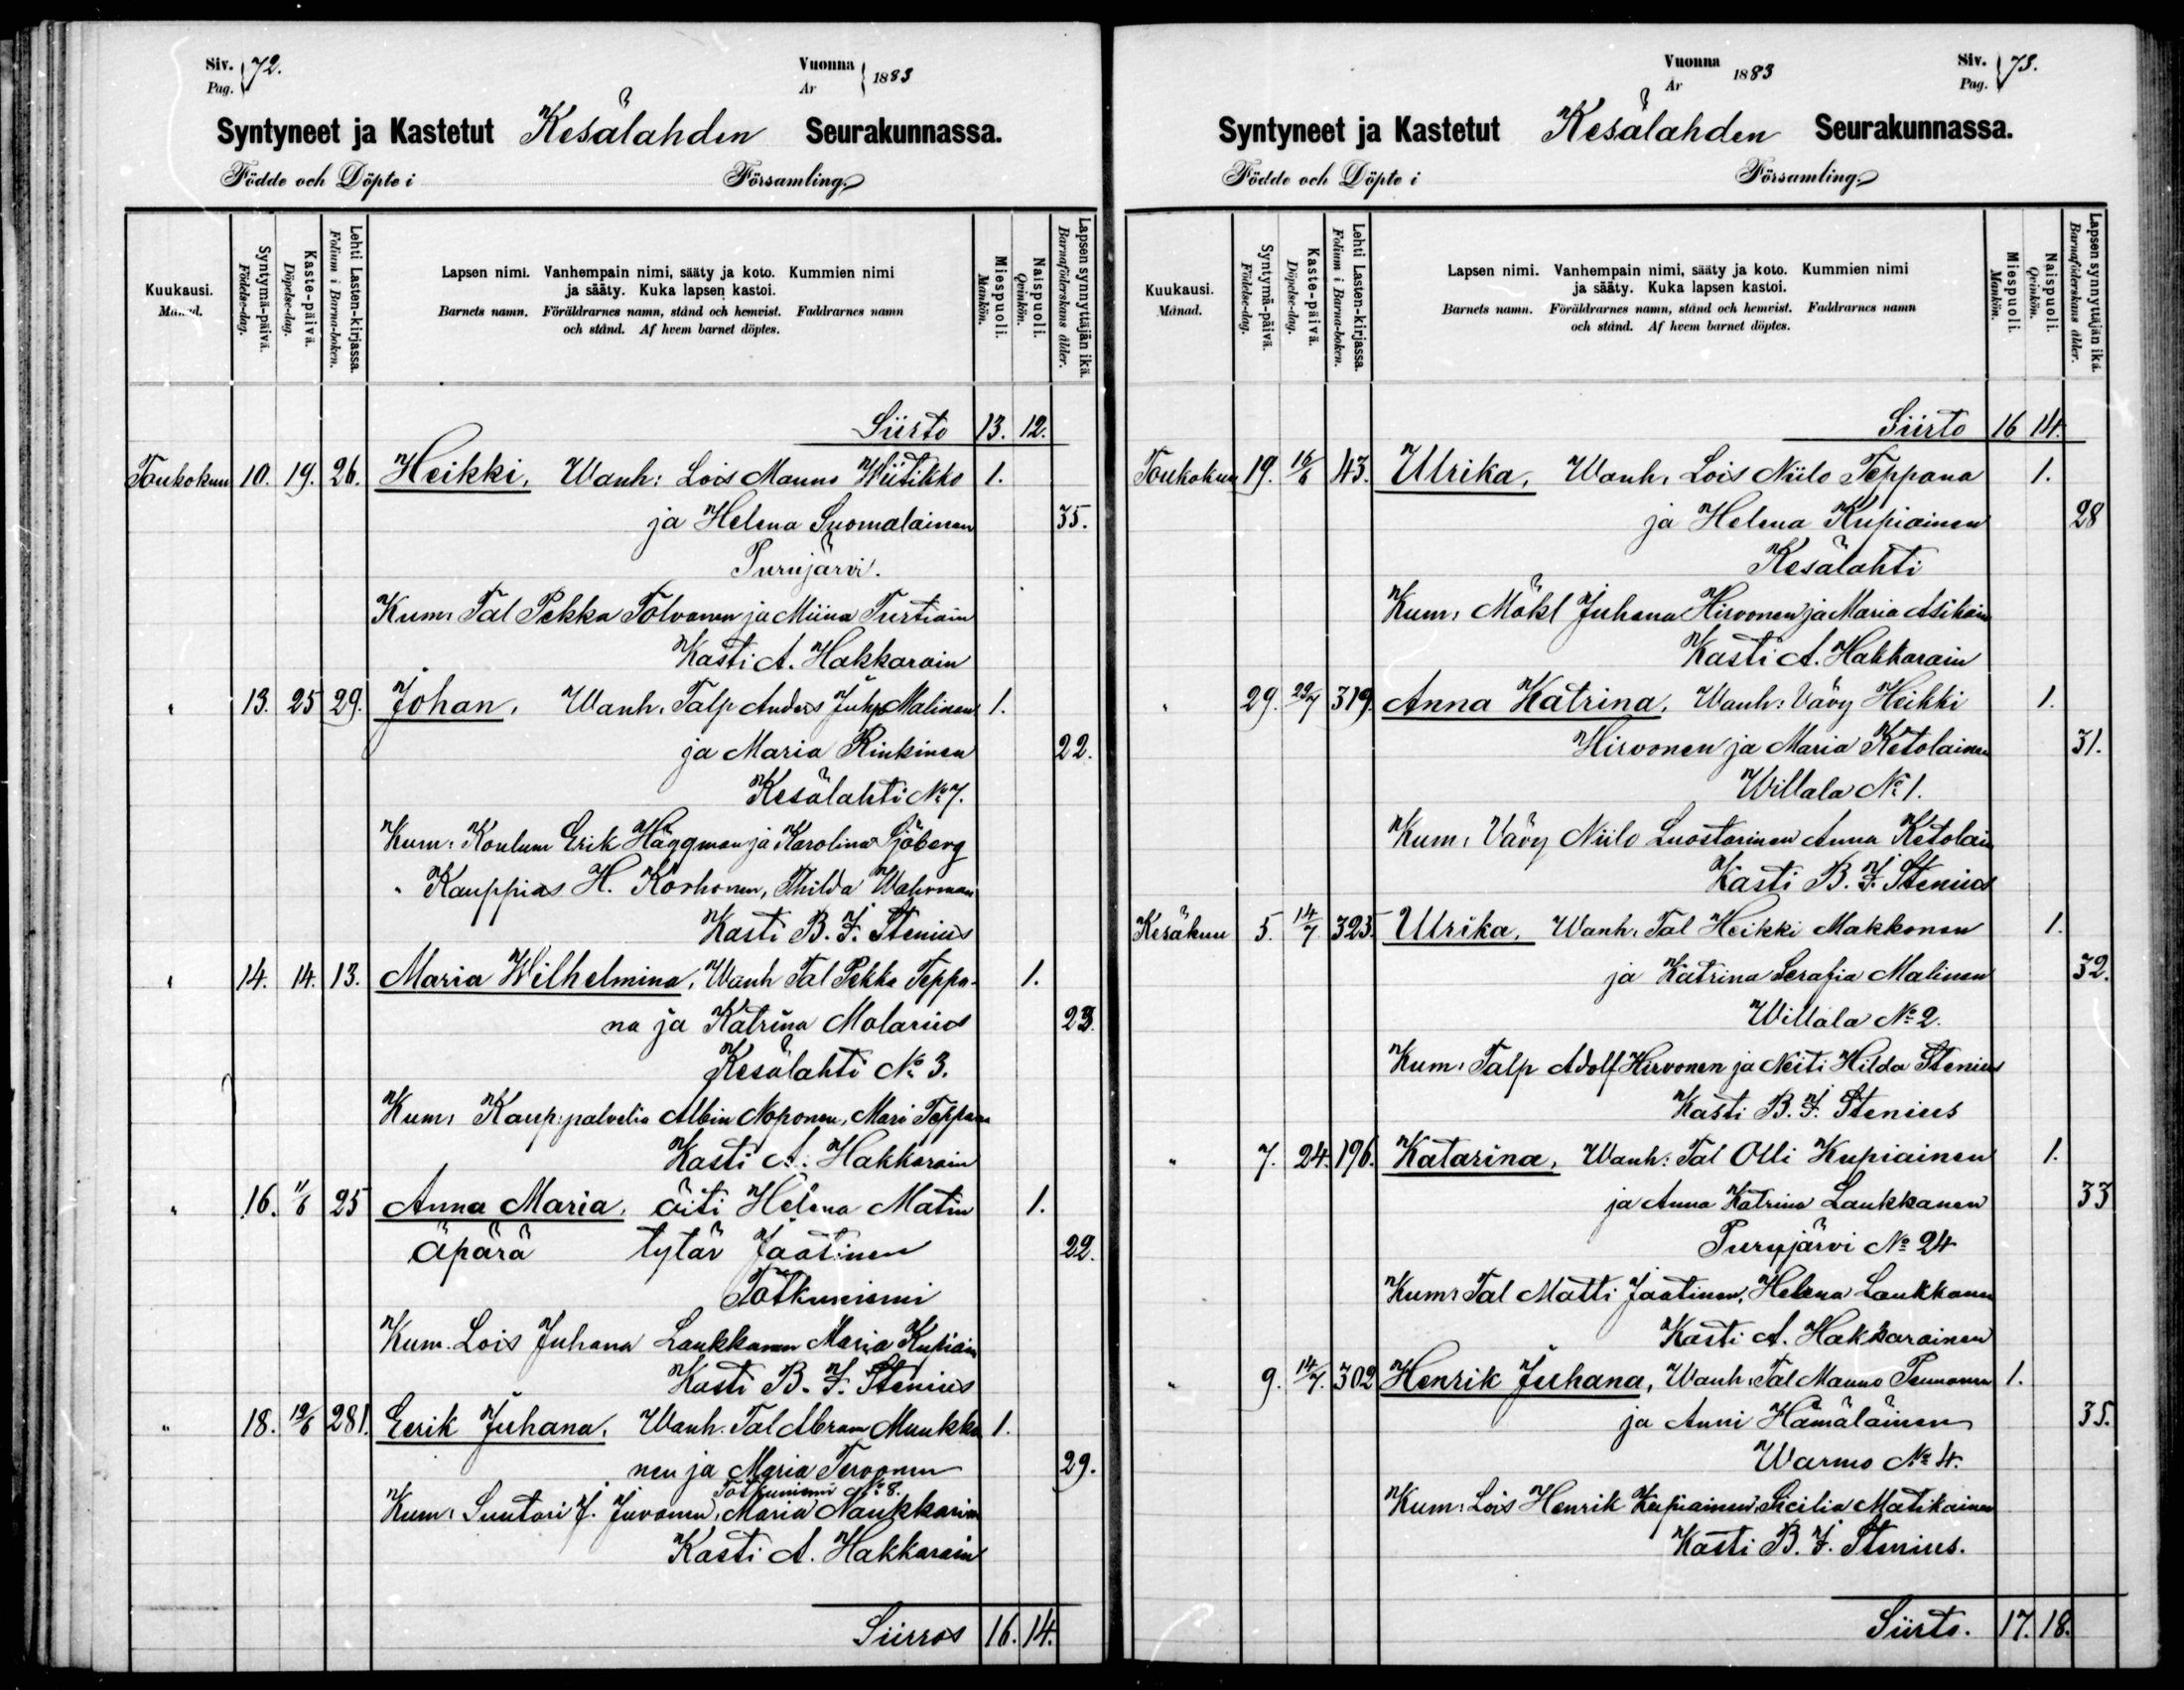 Siv. 72.
Pag.
Vuonna 1883
År
Syntyneet ja Kastetut Kesälahden Seurakunnassa.
Födde och Döpte i Församling.
Kuukausi.
Månad.
Syntymä-päivä.
Födelse-dag.
Kaste-päivä.
Döpelse-dag.
Lehti Lasten-kirjassa.
Folium i Barna-boken.
Lapsen nimi. Vanhempain nimi, sääty ja koto. Kummien nimi
ja sääty. Kuka lapsen kastoi.
Barnets namn. Föräldrarnes namn, stånd och hemvist. Faddrarnes namn
och stånd. Af hvem barnet döptes.
Miespuoli.
Mankön.
Naispuoli.
Qvinkön.
Lapsen synnyttäjän ikä.
Barnaföderskans ålder.
Siirto 13. 12.
Toukokuu 10. 19. 26. Heikki, Wanh: Lois Mauno Wiitikko 1.
ja Helena Suomalainen 35.
Purujärvi.
Kum: Tal Pekka Tolvanen ja Miina Turtiain
Kasti A. Hakkarain
" 13. 25 29. Johan, Wanh. Talp Anders Juhp Malinen 1.
ja Maria Rinkinen 22.
Kesälahti No 7.
Kum: Koulum Erik Häggman ja Karolina Sjöberg
" Kauppias H. Korhonen, Thilda Wahrman
Kasti B. F. Stenius
" 14. 14. 13. Maria Wilhelmina, Wanh Tal Pekka Teppa- 1.
na ja Katrina Molarius 23.
Kesälahti No 3.
Kum: Kaup: palvelia Albin Noponen, Mari Teppana
Kasti A. Hakkarain
" 16. 11/6 25 Anna Maria, äiti Helena Matin 1.
äpärä tytär Jaatinen 22.
Totkuniemi
Kum. Lois Juhana Laukkanen Maria Kupiain
Kasti B. F. Stenius
" 18. 19/6 281. Eerik Juhana, Wanh. Tal Abram Muukko 1.
nen ja Maria Tervonen 29.
Totkuniemi No 8.
Kum: Suutari J. Juvonen, Maria Naukkarin
Kasti A. Hakkarain
Siirros 16. 14.
Vuonna 1883
År
Siv. 73.
Pag.
Syntyneet ja Kastetut Kesälahden Seurakunnassa.
Födde och Döpte i Församling.
Kuukausi.
Månad.
Syntymä-päivä.
Födelse-dag.
Kaste-päivä.
Döpelse-dag.
Lehti Lasten-kirjassa.
Folium i Barna-boken.
Lapsen nimi. Vanhempain nimi, sääty ja koto. Kummien nimi
ja sääty. Kuka lapsen kastoi.
Barnets namn. Föräldrarnes namn, stånd och hemvist. Faddrarnes namn
och stånd. Af hvem barnet döptes.
Miespuoli.
Mankön.
Naispuoli.
Qvinkön.
Lapsen synnyttäjän ikä.
Barnaföderskans ålder.
Siirto 16 14.
Toukokuu 19. 16/6 43. Ulrika, Wanh. Lois Niilo Teppana 1.
ja Helena Kupiainen 28
Kesälahti
Kum: Mökl Juhana Hirvonen ja Maria Asikain
Kasti A. Hakkarain
" 29. 22/7 319. Anna Katrina, Wanh: Vävy Heikki 1.
Hirvonen ja Maria Ketolainen 31.
Willala No 1.
Kum: Vävy Niilo Luostarinen Anna Ketolain
Kasti B. F. Stenius
Kesäkuu 5. 14/7 325. Ulrika, Wanh. Tal Heikki Makkonen 1.
ja Katrina Serafia Malinen 32.
Willala No 2.
Kum: Talp Adolf Hirvonen ja Neiti Hilda Stenius
Kasti B. F. Stenius
" 7. 24. 196. Katarina, Wanh: Tal Olli Kupiainen 1.
ja Anna Katrina Laukkanen 33
Purujärvi No 24
Kum: Tal Matti Jaatinen, Helena Laukkanen
Kasti A. Hakkarainen
" 9. 14/7. 302 Henrik Juhana, Wanh: Tal Mauno Pennanen 1.
ja Anni Hämäläinen 35.
Warmo No 4.
Kum: Lois Henrik Kupiainen, Sicilia Matikainen
Kasti B. F. Stenius.
Siirto. 17. 18.